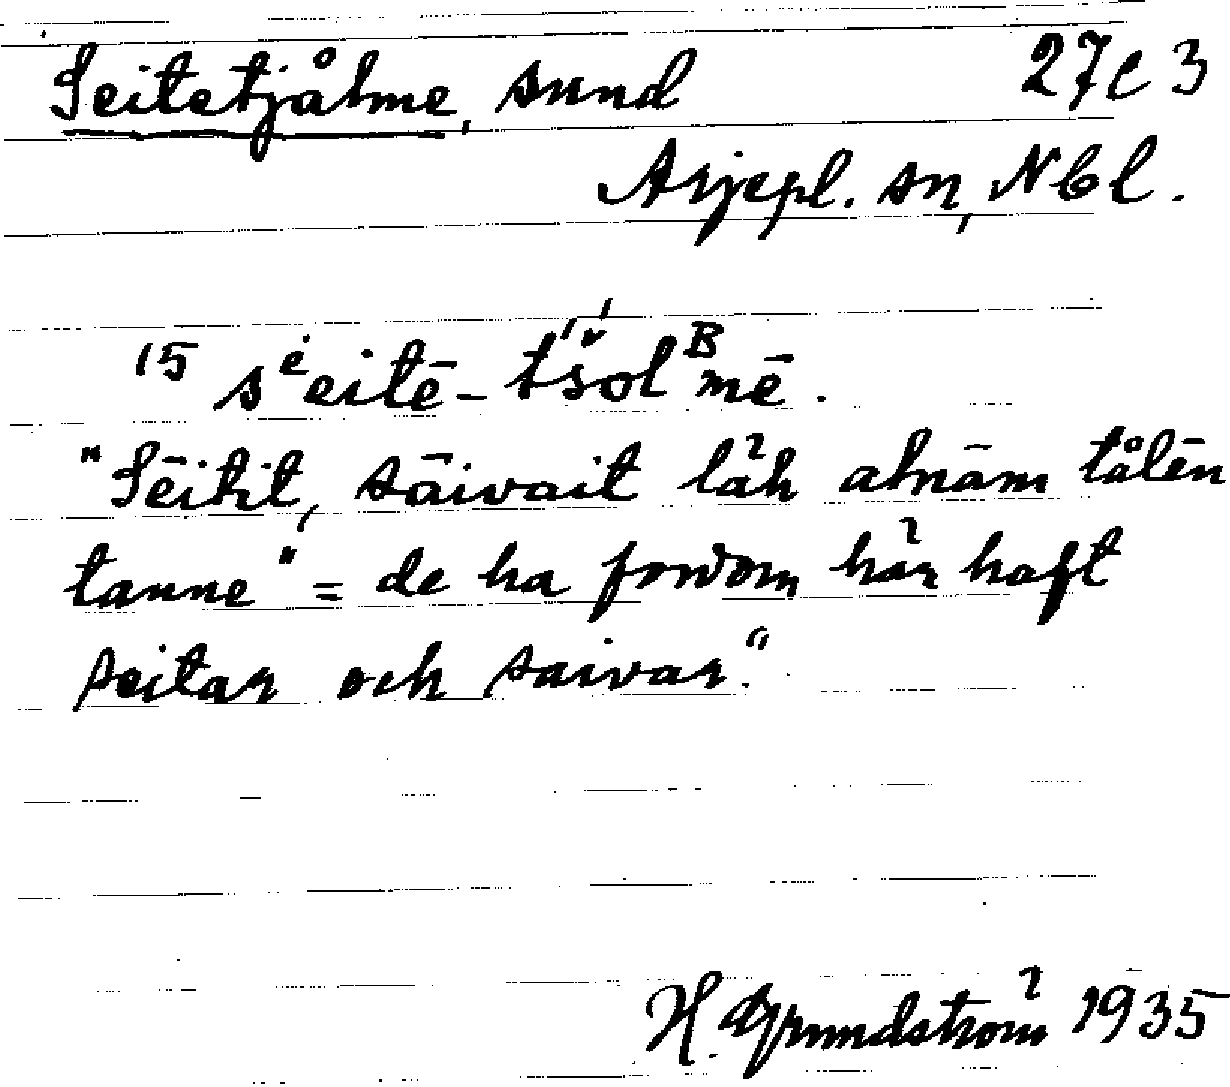 Seitetjålme, sund 27c 3
Arjepl. sn, Nbl.
15 sᵉeitē-t́šólᴮmē.
"Sēitit, sāivait läh adnām tålēn
tanne" = de ha fordom här haft
seitar och saivar."
H. Grundström 1935